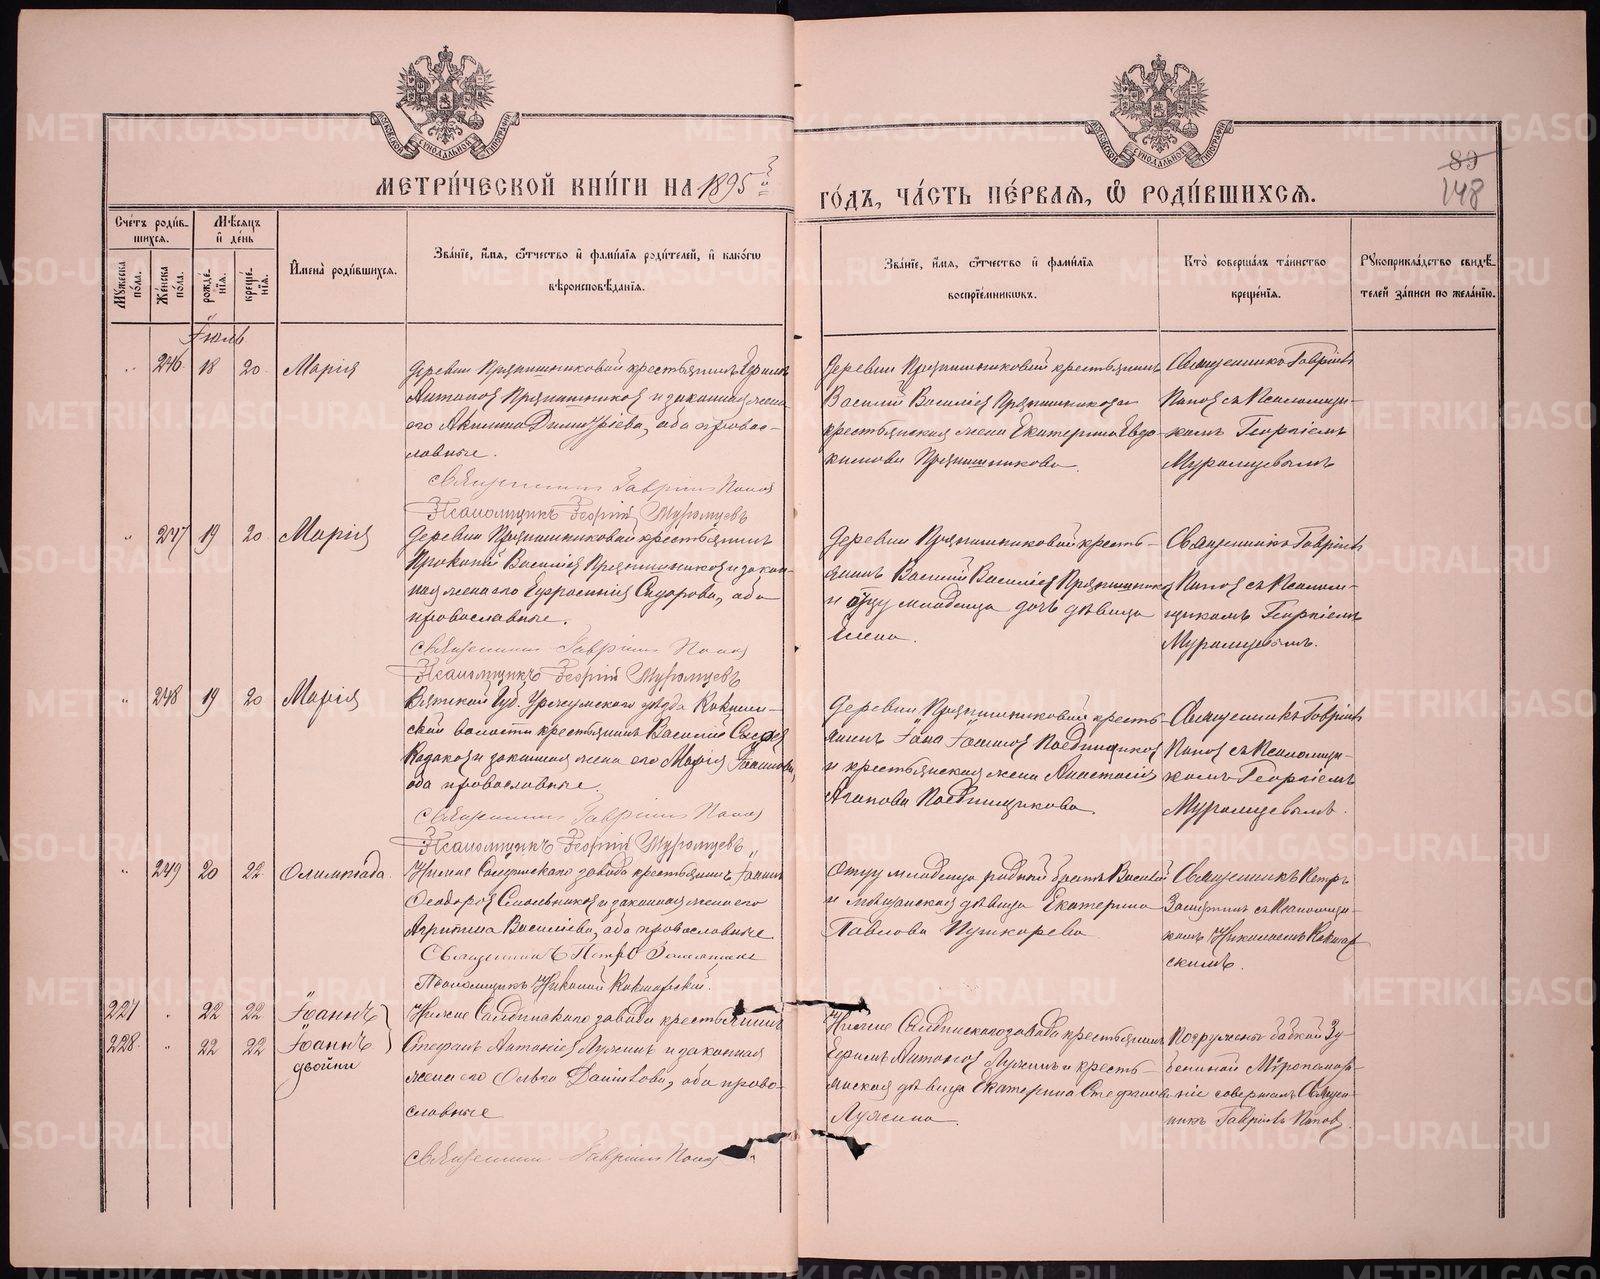 МЕТРИ́ЧЕСКОЙ КНИ́ГИ НА 1895 й
ГО́ДЪ, ЧА́СТЬ ПЕ́РВАѦ, Ѡ РОДИ́ВШИХСѦ.
89
148
Сче́тъ роди́в-
шихсѧ.
Мѣсяцъ
и де́нь
Мꙋжеска по́ла.
Же́нска по́ла.
рожде́-
нїѧ.
креще́-
нїѧ.
И҆мена̀ роди́вшихсѧ.
Зва́нїе, и҆́мѧ, ѻ҆́тчество и҆ фами́лїѧ роди́телей, и҆ како́гѡ
вѣроисповѣ́данїѧ.
Зва́нїе, и҆́мѧ, ѻ҆́тчество и҆ фами́лїѧ
воспрїе́мникѡвъ.
Кто̀ соверша́лъ та́инство
креще́нїѧ.
Рꙋкоприкла́дство свидѣ́-
телей за́писи по жела́нїю.
Іюль
" 246 18 20 Марія
деревни Пряпишниковой крестьянинъ Ефимъ
Антоновъ Пряпишниковъ и законная жена
его Акилина Димитріева, оба правос-
лавные.
Священникъ Гавріилъ Поповъ
Псаломщикъ Георгій Муромцевъ
деревни Пряпишниковой крестьянинъ
Василій Васильевъ Пряпишниковъ и
крестьянская жена Екатерина Евдо-
кимова Пряпишникова.
Священникъ Гавріилъ
Поповъ съ Псаломщи-
комъ Георгіемъ
Муромцевымъ
" 247 19 20 Марія
деревни Пряпишниковой крестьянинъ
Прокопій Васильевъ Пряпишниковъ и закон-
ная жена его Ефросинія Сидорова, оба
православные.
Священникъ Гавріилъ Поповъ
Псаломщикъ Георгій Муромцевъ
деревни Пряпишниковой кресть-
янинъ Василій Васильевъ Пряпишниковъ
и отцу младенца дочь дѣвица
Елена.
Священникъ Гавріилъ
Поповъ съ Псалом-
щикомъ Георгіемъ
Муромцевымъ.
" 248 19 20 Марія
Вятской Губ. Уржумскаго уѣзда
волости крестьянинъ Василій
Казаковъ и законная жена его Марія
оба православные.
Священникъ Гавріилъ Поповъ
Псаломщикъ Георгій Муромцевъ
деревни Пряпишниковой кресть-
янинъ
и крестьянская жена Анастасія
Агапова
Священникъ Гавріилъ
Поповъ съ Псаломщи-
комъ Георгіемъ
Муромцевымъ.
" 249 20 22 Олимпіада.
Нижне Салдинскаго завода крестьянинъ Іоаннъ
Ѳеодоровъ Смольниковъ и законная жена его
Агрипина Васильева, оба православные
Священникъ Петръ
Псаломщикъ Николай
отцу младенца родной братъ Василій
и мѣщанская дѣвица Екатерина
Павлова Пушкарева
Священникъ Петръ
съ Псаломщи-
комъ Николаемъ
227 " 22 22 Іоаннъ
228. " 22 22 Іоаннъ
двойни
Нижне Салдинскаго завода крестьянинъ
Стефанъ Антоніевъ Лужинъ и законная
жена его Ольга Даниловна, оба право-
славные
Священникъ Гавріилъ Поповъ
Нижне Салдинскаго завода крестьянинъ
Ефимъ Антоновъ Лужинъ и кресть-
янская дѣвица Екатерина Стефанова
Лужина.
Погружены бабкой Зу-
биной Мѵропомаза-
ніе совершалъ Священ-
никъ Гавріилъ Поповъ.